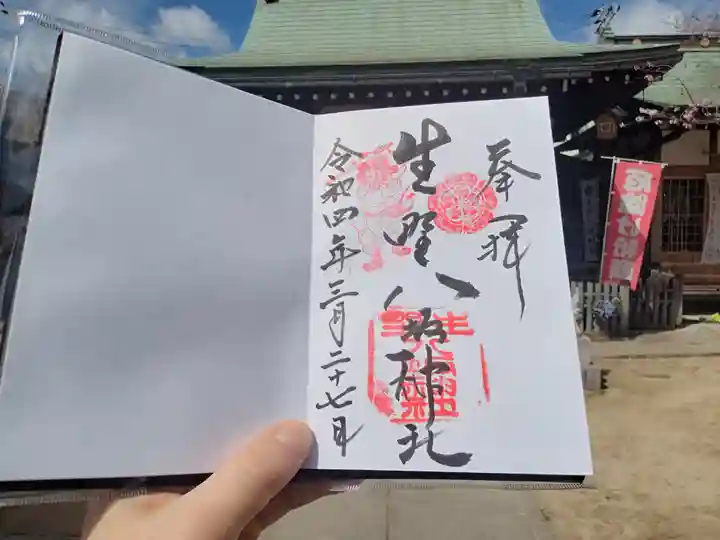 奉拝
生野八坂神社
令和四年三月二十七日